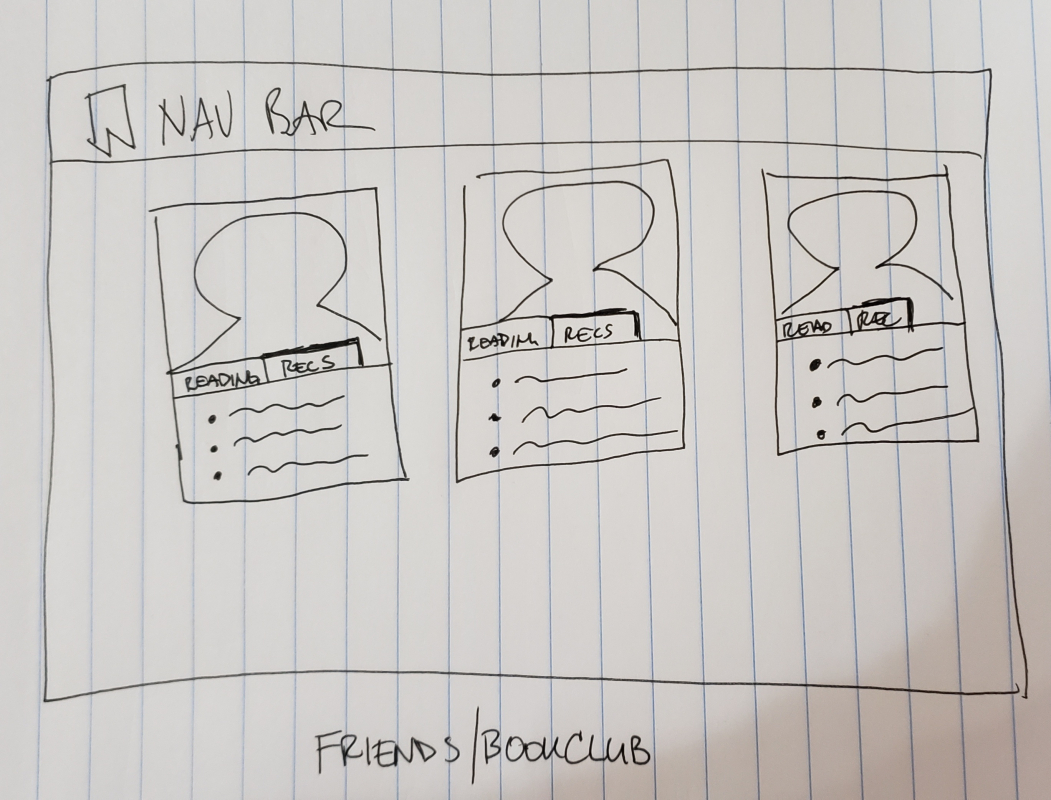 NAV BAR
READING RECS
READING RECS
READ REC
FRIENDS/BOOKCLUB